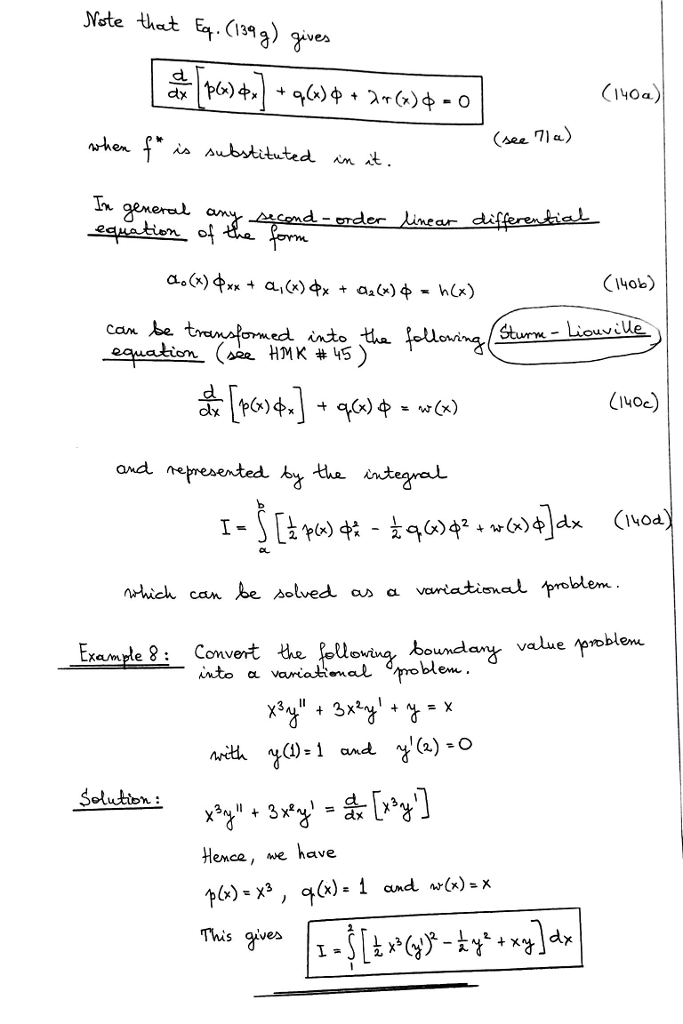 Note that Eq. (139g) gives
d/dx [p(x) ϕₓ] + q(x) ϕ + λr(x) ϕ = 0 (140a)
(see 71a)
when f* is substituted in it.
In general any second-order linear differential
equation of the form
a₀(x) ϕₓₓ + a₁(x) ϕₓ + a₂(x) ϕ = h(x) (140b)
can be transformed into the following Sturm-Liouville
equation (see HMK # 45)
d/dx [p(x) ϕₓ] + q(x) ϕ = w(x) (140c)
and represented by the integral
I = ∫ₐᵇ [½ p(x) ϕₓ² - ½ q(x) ϕ² + w(x) ϕ] dx (140d)
which can be solved as a variational problem.
Example 8: Convert the following boundary value problem
into a variational problem.
x³y'' + 3x²y' + y = x
with y(1) = 1 and y'(2) = 0
Solution: x³y'' + 3x²y' = d/dx [x³y']
Hence, we have
p(x) = x³, q(x) = 1 and w(x) = x
This gives I = ∫₁² [½ x³(y')² - ½ y² + xy] dx